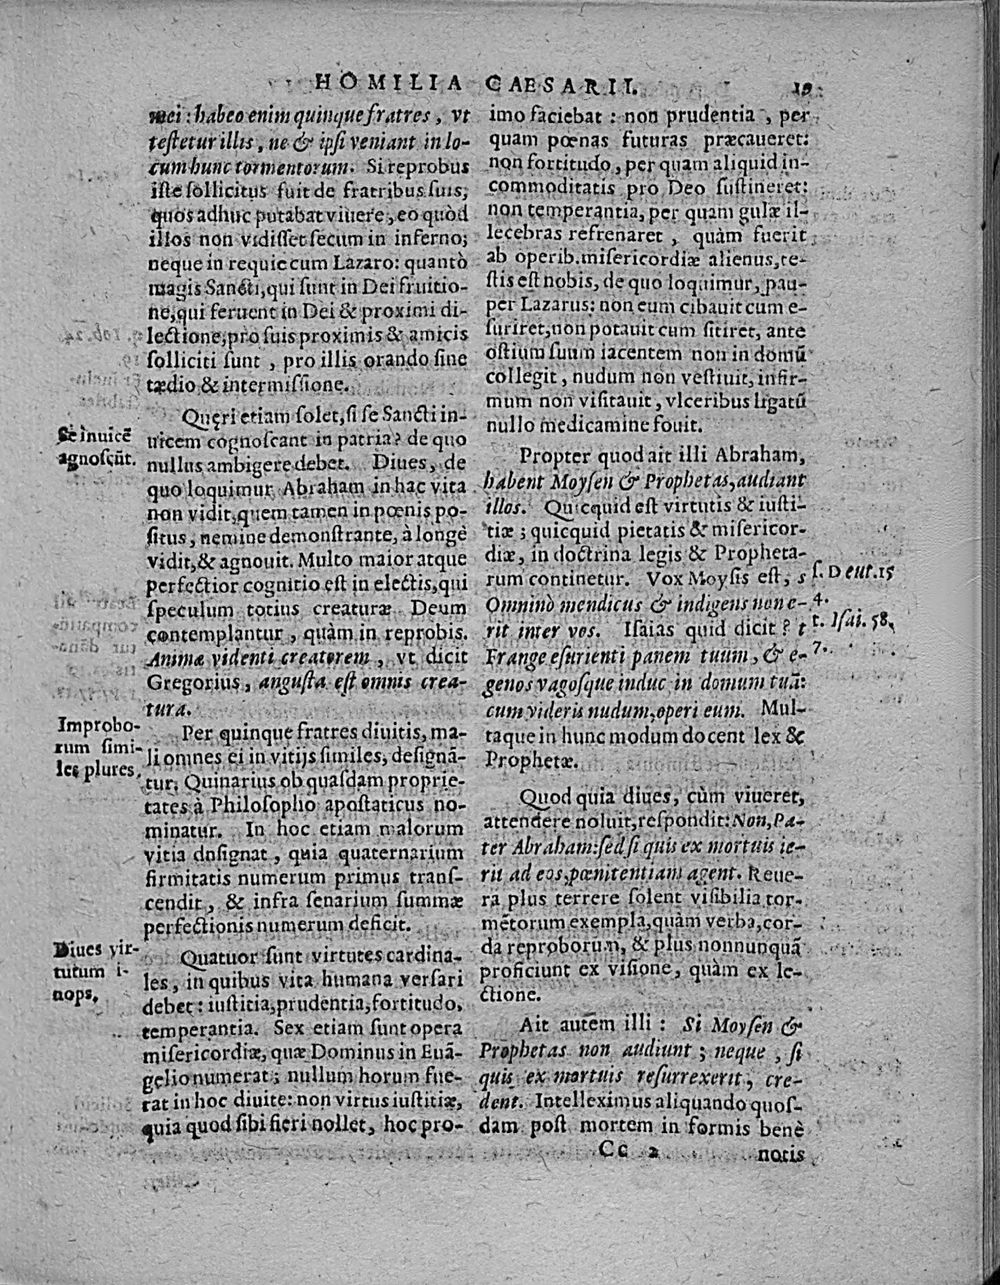 HOMILIA CAESARII. 19
mei: habeo enim quinque fratres, vt
testetur illis, ne & ipsi veniant in lo-
cum hunc tormentorum. Si reprobus
iste sollicitus fuit de fratribus suis,
quos adhuc putabat viuere, eo quòd
illos non vidisset secum in inferno;
neque in requie cum Lazaro: quantò
magis Sancti, qui sunt in Dei fruitio-
ne, qui feruent in Dei & proximi di-
lectione, pro suis proximis & amicis
solliciti sunt, pro illis orando sine
tædio & intermissione.
Quęri etiam solet, si se Sancti in-
uicem cognoscant in patria? de quo
nullus ambigere debet. Diues, de
quo loquimur, Abraham in hac vita
non vidit, quem tamen in pœnis po-
situs, nemine demonstrante, à longè
vidit, & agnouit. Multo maior atque
perfectior cognitio est in electis, qui
speculum totius creaturæ Deum
contemplantur, quàm in reprobis.
Animæ videnti creatorem, vt dicit
Gregorius, angusta est omnis crea-
tura.
Per quinque fratres diuitis, ma-
li omnes ei in vitijs similes, designã-
tur. Quinarius ob quasdam proprie-
tates à Philosopho apostaticus no-
minatur. In hoc etiam malorum
vitia dnsignat, quia quaternarium
firmitatis numerum primus trans-
cendit, & infra senarium summæ
perfectionis numerum deficit.
Quatuor sunt virtutes cardina-
les, in quibus vita humana versari
debet: iustitia, prudentia, fortitudo,
temperantia. Sex etiam sunt opera
misericordiæ, quæ Dominus in Euã-
gelio numerat; nullum horum fue-
rat in hoc diuite: non virtus iustitiæ,
quia quod sibi fieri nollet, hoc pro-
Se inuicẽ
agnoscũt.
Improbo-
rum simi-
les plures.
Diues vir-
tutum i-
nops.
imo faciebat: non prudentia, per
quam pœnas futuras præcaueret:
non fortitudo, per quam aliquid in-
commoditatis pro Deo sustineret:
non temperantia, per quam gulæ il-
lecebras refrenaret, quàm fuerit
ab operib. misericordiæ alienus, te-
stis est nobis, de quo loquimur, pau-
per Lazarus: non eum cibauit cum e-
suriret, non potauit cum sitiret, ante
ostium suum iacentem non in domũ
collegit, nudum non vestiuit, infir-
mum non visitauit, vlceribus ligatũ
nullo medicamine fouit.
Propter quod ait illi Abraham,
habent Moysen & Prophetas, audiant
illos. Quicquid est virtutis & iusti-
tiæ; quicquid pietatis & misericor-
diæ, in doctrina legis & Propheta-
rum continetur. Vox Moysis est, s
Omninò mendicus & indigens non e-
rit inter vos. Isaias quid dicit? t
Frange esurienti panem tuum, & e-
genos vagosque induc in domum tuã:
cum videris nudum, operi eum. Mul-
taque in hunc modum docent lex &
Prophetæ.
Quod quia diues, cùm viueret,
attendere noluit, respondit: Non, Pa-
ter Abraham: sed si quis ex mortuis ie-
rit ad eos, pœnitentiam agent. Reue-
ra plus terrere solent visibilia tor-
mẽtorum exempla, quàm verba, cor-
da reproborum, & plus nonnunquã
proficiunt ex visione, quàm ex le-
ctione.
Ait autem illi: Si Moysen &
Prophetas non audiunt; neque, si
quis ex mortuis resurrexerit, cre-
dent. Intelleximus aliquando quos-
dam post mortem in formis benè
s. Deut. 15
4.
t. Isai. 58,
7.
Cc 2 notis